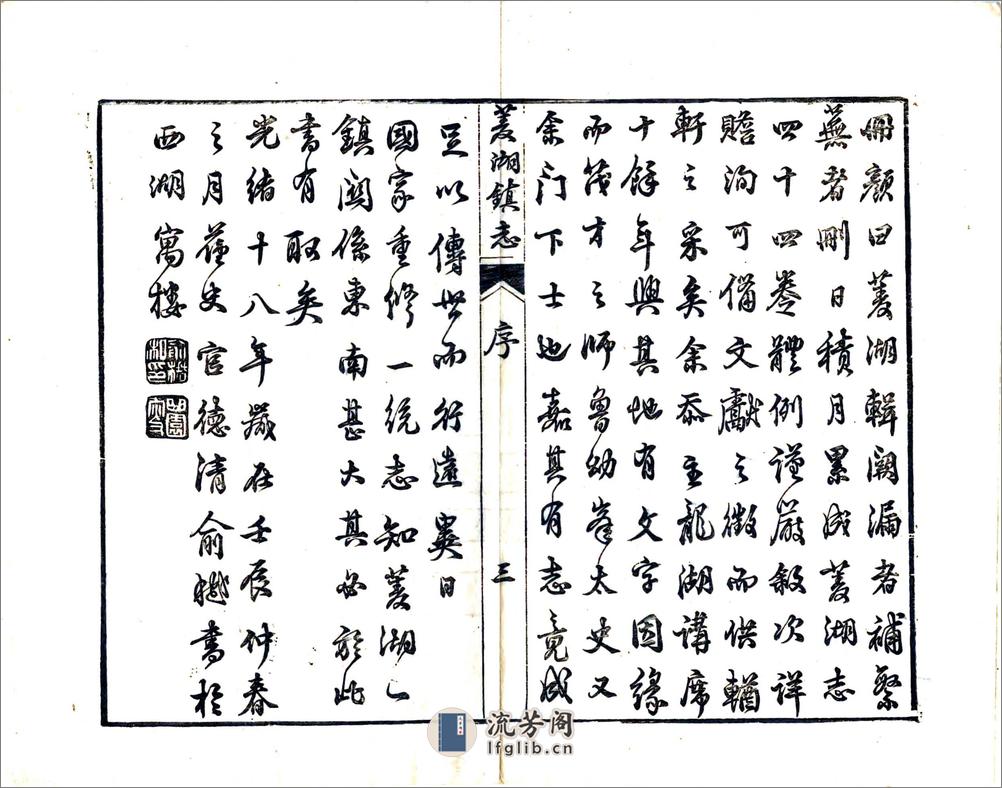 冊顏曰菱湖輯闕漏者補繁
蕪者刪日積月累成菱湖志
四十四卷體例謹嚴敘次詳
贍洵可備文獻之徵而供輶
軒之采矣余忝主龍湖講席
十餘年與其地有文字因緣
而茂才之師魯幼峯太史又
余門下士也嘉其有志竟成
菱湖鎮志 序 三
足以傳世而行遠異日
國家重修一統志知菱湖一
鎮關係東南甚大其必於此
書有取矣
光緒十八年歲在壬辰仲春
之月舊史官德清俞樾書於
西湖寓樓
流芳阁
lfglib.cn